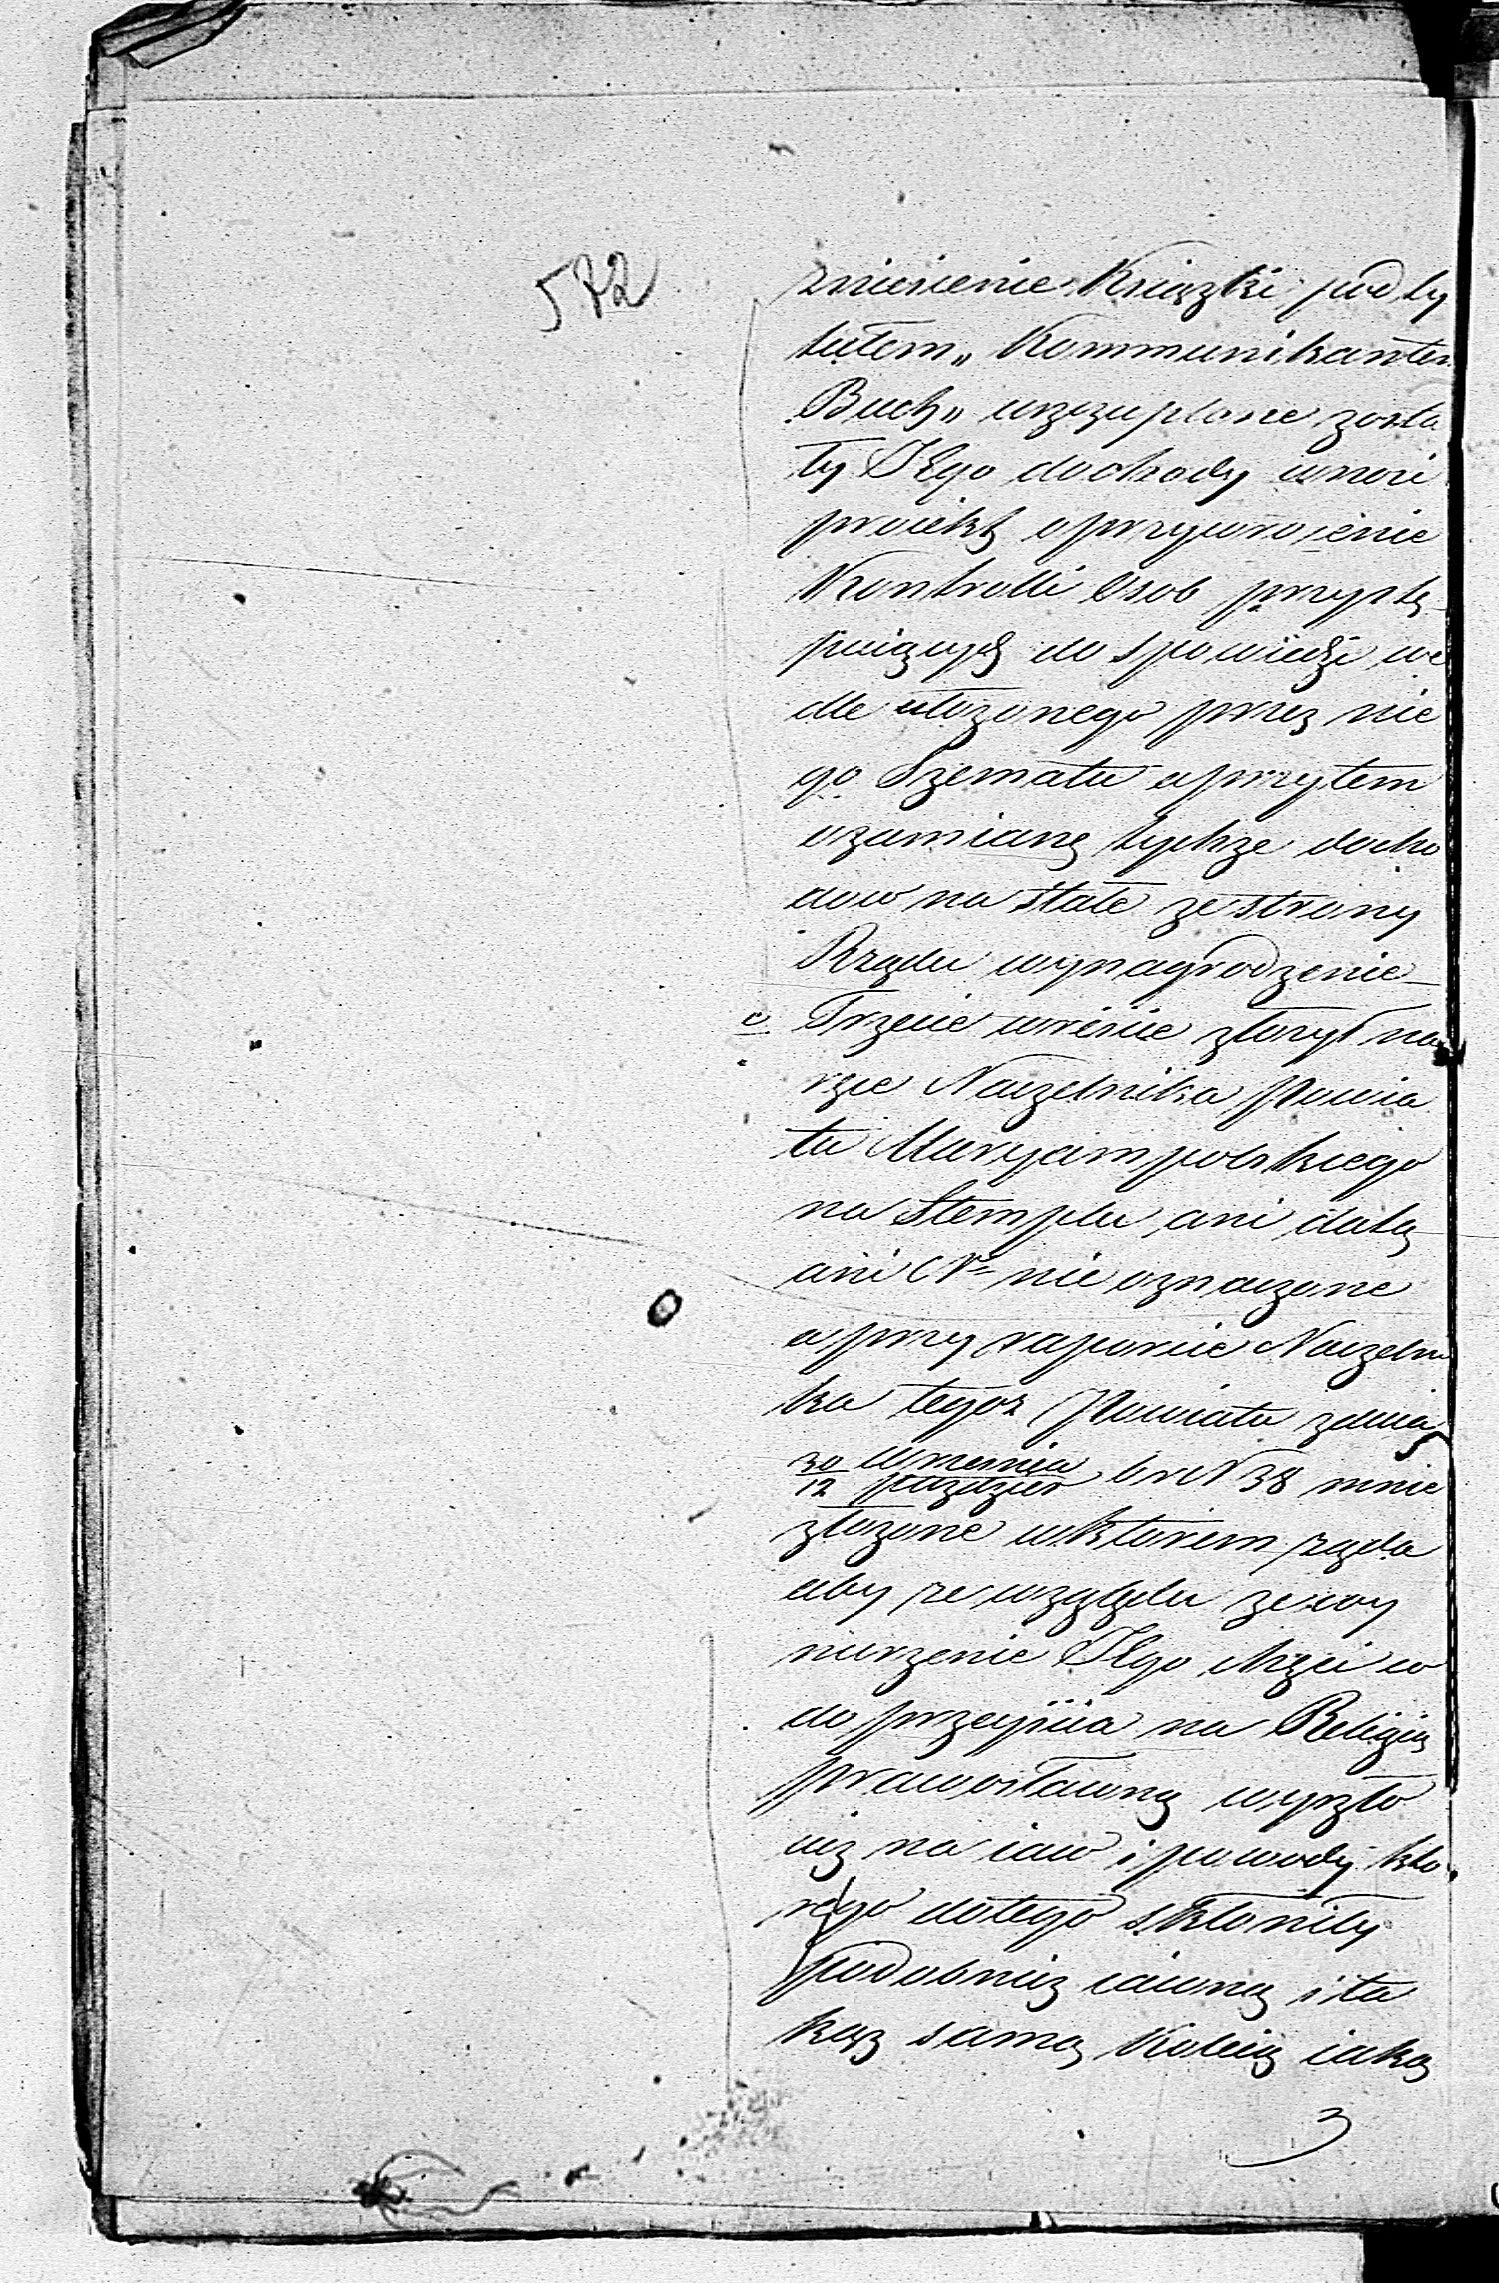 572
zniesienie Książki pod ty
tułem „Kommunikanten
Buch" uszczuplone zosta
ły JEgo dochody wnosi
proiekt o przywrócenie
Kontrolli Osob przystę
puiących do spowiedzi we
dle ułożonego przez nie
go Szematu a przytem
o zamianę tychże docho
dow na stałe ze strony
Rządu wynagrodzenie
c Trzecie wreście złożył na
ręce Naczelnika Powia
tu Maryampolskiego
na Stemplu, ani datą
ani Nr nie oznaczone
a przy raporcie Naczelni
ka tegoż Powiatu z dnia
30 Września
12 Paździer br N 38 mnie
złożone w którem żąda
aby ze względu że wy
nurzenie JEgo chęci co
do przeyścia na Religią
prawosławną wyszło
iuż na iaw i powody któ
rego do tego skłoniły
podobnież iawną i ta
kąż samą Koleią iaką
3